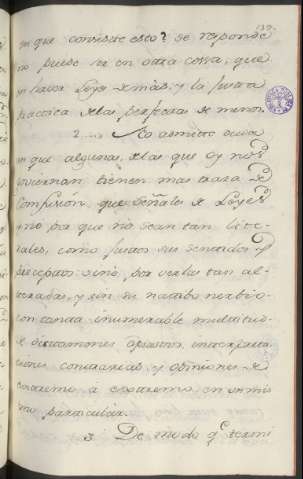 139.
en que consiste esto? se responde
no puede ser en otra cosa, que
en haver Leyes de más, y la justa
practica de las perfectas de menos.
2.... No admite duda
en que algunas, de las que oy nos
goviernan tienen mas traza de
Confusion, que Señales de Leyes
no por que no sean tan lite-
rales, como justos sus sentidos y
preceptos sino por verlas tan al-
teradas, y sin su nativo nerbio-
con tanta inumerable multitud-
de dictamenes opuestos interpreta
ciones contrarias y opiniones de
extremo a extremo en un mis
mo particular.
3. De modo q.e termi